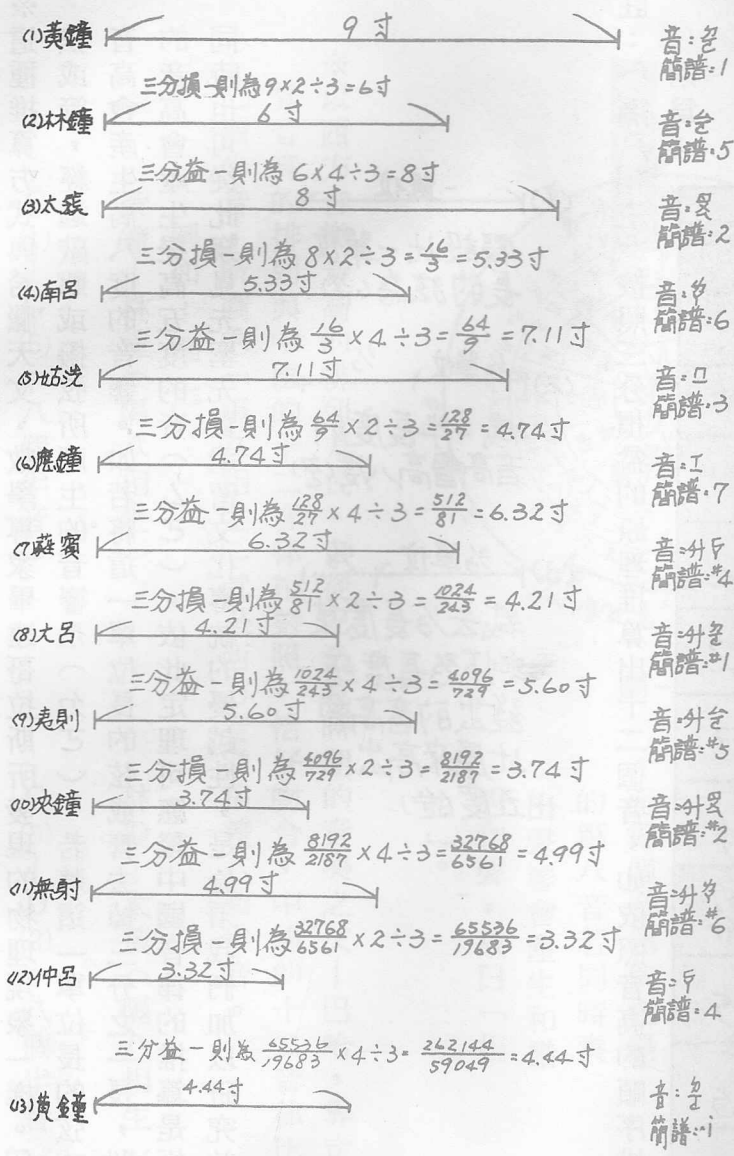 (1)黃鐘 9寸 音:ㄉㄛ
簡譜:1
三分損一則為9×2÷3=6寸
(2)林鐘 6寸 音:ㄙㄛ
簡譜:5
三分益一則為 6×4÷3=8寸
(3)太簇 8寸 音:ㄖㄨㄟ
簡譜:2
三分損一則為 8×2÷3=16/3=5.33寸
(4)南呂 5.33寸 音:ㄌㄚ
簡譜:6
三分益一則為 16/3×4÷3=64/9=7.11寸
(5)姑洗 7.11寸 音:ㄇㄧ
簡譜:3
三分損一則為 64/9×2÷3=128/27=4.74寸
(6)應鐘 4.74寸 音:ㄒㄧ
簡譜:7
三分益一則為 128/27×4÷3=512/81=6.32寸
(7)蕤賓 6.32寸 音:升ㄈㄚ
簡譜:#4
三分損一則為 512/81×2÷3=1024/243=4.21寸
(8)大呂 4.21寸 音:升ㄉㄛ
簡譜:#1
三分益一則為 1024/243×4÷3=4096/729=5.60寸
(9)夷則 5.60寸 音:升ㄙㄛ
簡譜:#5
三分損一則為 4096/729×2÷3=8192/2187=3.74寸
(10)夾鐘 3.74寸 音:升ㄖㄨㄟ
簡譜:#2
三分益一則為 8192/2187×4÷3=32768/6561=4.99寸
(11)無射 4.99寸 音:升ㄌㄚ
簡譜:#6
三分損一則為 32768/6561×2÷3=65536/19683=3.32寸
(12)仲呂 3.32寸 音:ㄈㄚ
簡譜:4
三分益一則為 65536/19683×4÷3=262144/59049=4.44寸
(13)黃鐘 4.44寸 音:ㄉㄛ
簡譜:i